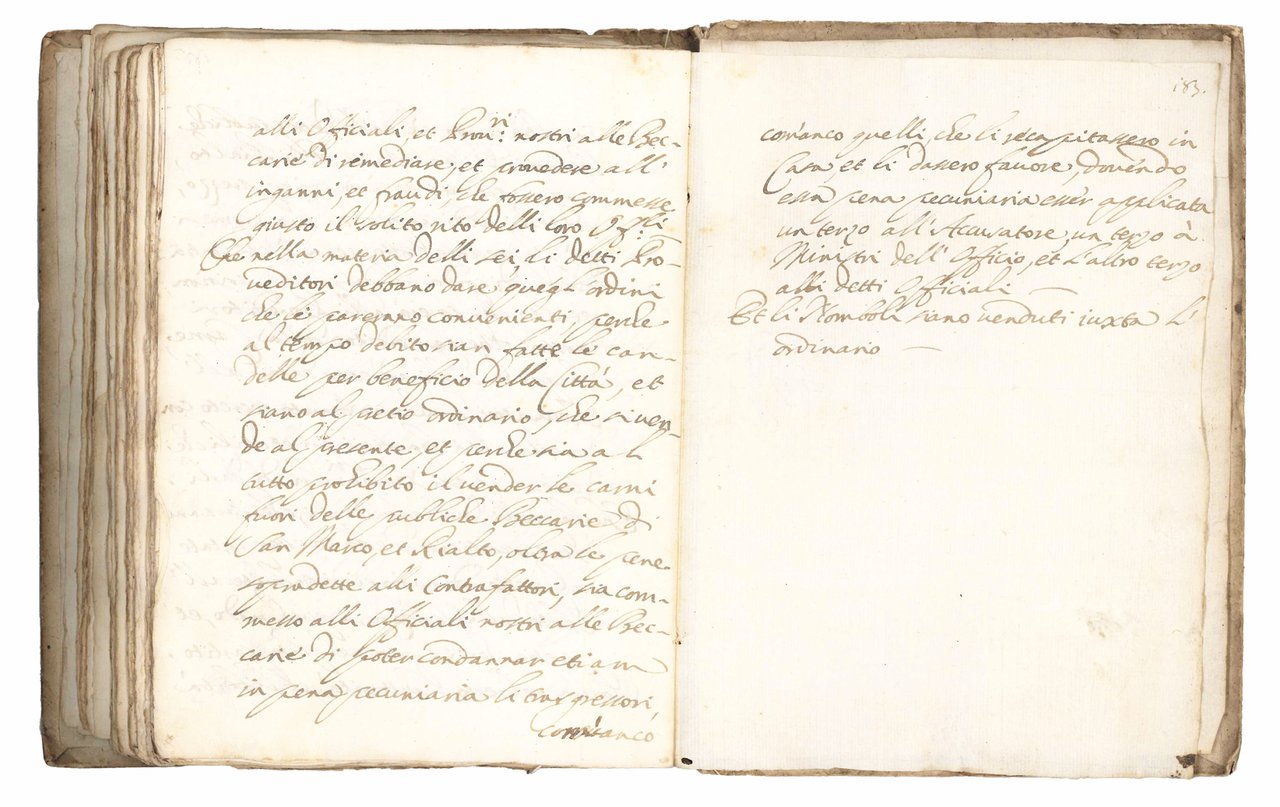 alli Officiali, et Prou:ri nostri alle Bec-
carie di rimediare, et prouedere all'
inganni, et fraudi, che fossero commesse
giusto il solito rito delli loro
Che nella materia delli seui li detti Pro-
ueditori debbano dare quegl'ordini
che le pareranno conuenienti, perche
al tempo debito sian fatte le can-
delle per beneficio della Città, et
siano al pretio ordinario, che si uen-
de al presente, et perche sia al
tutto prohibito il uender le carni
fuori delle publiche Beccarie di
San Marco, et Rialto, oltra le pene
sopradette alli Contrafattori, sia com-
messo alli Officiali nostri alle Bec-
carie di poter condannar etiam
in pena pecuniaria li trasgressori,
com'anco
183.
com'anco quelli, che li recapitassero in
Casa et li dassero fauore, douendo
essa pena pecuniaria esser applicata
un terzo all'Accusatore, un terzo à
Ministri dell'Officio, et l'altro terzo
alli detti Officiali
Et li Romboli siano uenduti iuxta l'
ordinario